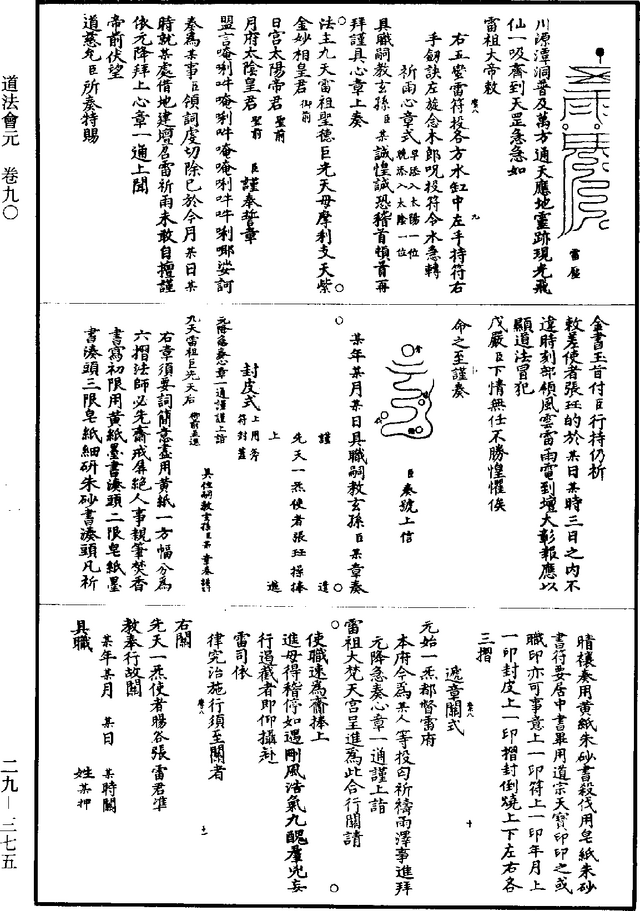 雷屋
川源潭洞普及萬方通天應地靈跡現光飛
仙一吸齋到天罡急急如
雷祖大帝敕
右五營雷符投各方水缸中左手持符右
手劔訣左旋念木郎呪投符令水急轉
祈雨心章式 早添入太陽一位 晚添入太陰一位
具職嗣教玄孫臣某誠惶誠恐稽首頓首再
拜謹具心章上奏
法主九天雷祖聖德巨光天母摩利支天紫
金妙相皇君 御前
日宮太陽帝君 聖前
月府太陰皇君 聖前 臣謹奉誓章
盟言唵唎吽唵唎吽唵唵唎吽吽唎㖿娑訶
奏為某事臣領詞虔切除已於今月某日某
時就某處借地建壇召雷祈雨未敢自擅謹
依元降拜上心章一通上聞
帝前伏望
道慈允臣所奏特賜
金書玉旨付臣行持仍祈
敕差使者張珏的於某日某時三日之内不
違時刻部領風雲雷雨電到壇大彰報應以
顯道法冒犯
戊嚴臣下情無任不勝惶懼俟
命之至謹奏
臣奏號上信
某年某月某日具職嗣教玄孫臣某章奏
謹遣
先天一炁使者張珏操捧
上進
封皮式 上用旁符封蓋
元降急奏心章一通謹謹上詣
具位嗣教玄孫臣某章奏謹封
九天雷祖巨光天后 御前至進
右章須要詞簡意盡用黄紙一方幅分為
六摺法師必先齋戒屏絕人事親筆焚香
書寫初限用黄紙墨書湊頭二限皂紙墨
書湊頭三限皂紙細研朱砂書湊頭凡祈
晴禳奏用黄紙朱砂書殺伐用皂紙朱砂
書符要居中書畢用道宗天寶印印之或
職印亦可事意上一印符上一印年月上
一印封皮上一印摺封倒繞上下左右各
三摺
遞章關式
元始一炁都督雷府
本府今為某人等投匄祈禱雨澤事進拜
元降急奏心章一通謹上詣
雷祖大梵天宮呈進為此合行關請
使職速為齋捧上
進毋得稽停如遇剛風浩氣九醜羣兇妄
行遏截者即仰攝赴
雷司依
律究治施行須至關者
右關
先天一炁使者暘谷張雷君準
教奉行故關
某年某月 某日 某時關
具職 姓某押
道法會元 卷九〇
二九—三七五